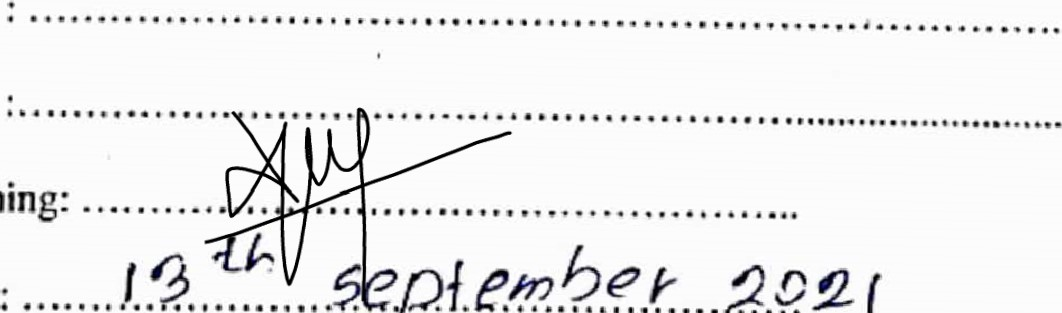 : ........................................................................
: ........................................................................
ning: ........................................................................
: ....... 13th september 2021